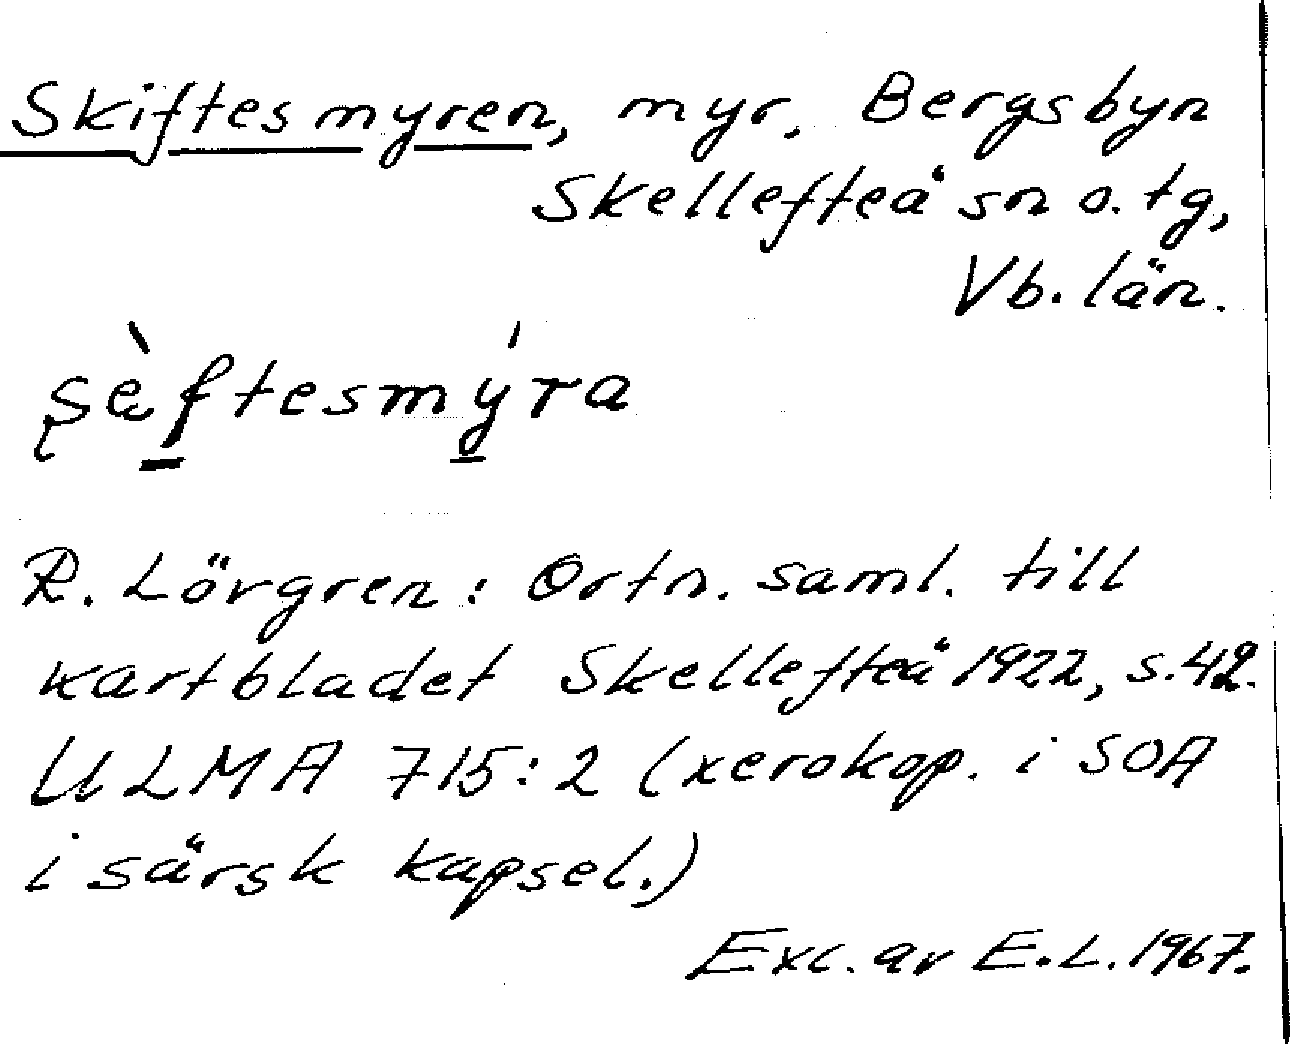 Skiftesmyren, myr, Bergsbyn
Skellefteå sn o. tg,
Vb. län.
şèf̲tesmý̲ra
R. Lövgren: Ortn. saml. till
kartbladet Skellefteå 1922, s. 42.
ULMA 715:2 (xerokop. i SOA
i särsk kapsel.)
Exc. av E.L. 1967.